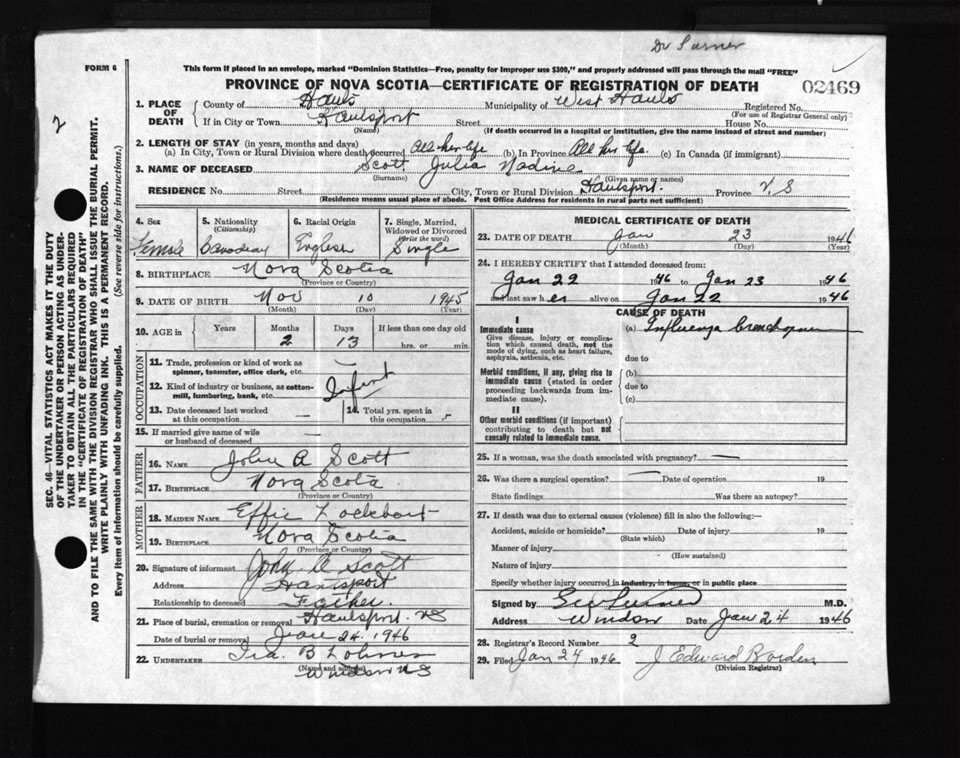 Dr Turner
FORM 6
This form if placed in an envelope, marked "Dominion Statistics—Free, penalty for improper use $300," and properly addressed will pass through the mail "FREE"
PROVINCE OF NOVA SCOTIA—CERTIFICATE OF REGISTRATION OF DEATH
02469
2
SEC. 46—VITAL STATISTICS ACT MAKES IT THE DUTY
OF THE UNDERTAKER OR PERSON ACTING AS UNDER-
TAKER TO OBTAIN ALL THE PARTICULARS REQUIRED
IN THE "CERTIFICATE OF REGISTRATION OF DEATH"
AND TO FILE THE SAME WITH THE DIVISION REGISTRAR WHO SHALL ISSUE THE BURIAL PERMIT.
WRITE PLAINLY WITH UNFADING INK. THIS IS A PERMANENT RECORD.
Every item of information should be carefully supplied. (See reverse side for instructions.)
1. PLACE OF DEATH County of Hants Municipality of West Hants Registered No.
(For use of Registrar General only)
If in City or Town Hantsport Street House No.
(Name) (If death occurred in a hospital or institution, give the name instead of street and number)
2. LENGTH OF STAY (in years, months and days)
(a) In City, Town or Rural Division where death occurred All her life (b) In Province All her life. (c) In Canada (if immigrant)
3. NAME OF DECEASED Scott Julia Nadine
(Surname) (Given name or names)
RESIDENCE No. Street City, Town or Rural Division Hantsport. Province N.S
(Residence means usual place of abode. Post Office Address for residents in rural parts not sufficient)
4. Sex 5. Nationality 6. Racial Origin 7. Single, Married,
(Citizenship) Widowed or Divorced
(Write the word)
Female Canadian English Single
8. BIRTHPLACE Nova Scotia
(Province or Country)
9. DATE OF BIRTH Nov 10 1945
(Month) (Day) (Year)
10. AGE in Years Months Days If less than one day old
2 13 hrs. or min.
OCCUPATION
11. Trade, profession or kind of work as —
spinner, teamster, office clerk, etc.
12. Kind of industry or business, as cotton- Infant
mill, lumbering, bank, etc.
13. Date deceased last worked 14. Total yrs. spent in
at this occupation — this occupation
15. If married give name of wife
or husband of deceased —
FATHER
16. NAME John A Scott
17. BIRTHPLACE Nova Scotia
(Province or Country)
MOTHER
18. MAIDEN NAME Effie Lockhart
19. BIRTHPLACE Nova Scotia
(Province or Country)
20. Signature of informant John A Scott
Address Hantsport
Relationship to deceased Father
21. Place of burial, cremation or removal Hantsport. NS
Date of burial or removal Jan 24. 1946
22. UNDERTAKER Ira. B Lohnes
(Name and address)
Windsor NS
MEDICAL CERTIFICATE OF DEATH
23. DATE OF DEATH Jan 23 1946
(Month) (Day) (Year)
24. I HEREBY CERTIFY that I attended deceased from:
Jan 22 1946 to Jan 23 1946
and last saw her alive on Jan 22 1946
CAUSE OF DEATH
I
Immediate cause (a) Influenza
Give disease, injury or complica-
tion which caused death, not the
mode of dying, such as heart failure, due to
asphyxia, asthenia, etc.
Morbid conditions, if any, giving rise to (b)
immediate cause (stated in order due to
proceeding backwards from im-
mediate cause). (c)
II
Other morbid conditions (if important)
contributing to death but not
causally related to immediate cause.
25. If a woman, was the death associated with pregnancy? —
26. Was there a surgical operation? — Date of operation 19
State findings Was there an autopsy?
27. If death was due to external causes (violence) fill in also the following:—
Accident, suicide or homicide? Date of injury 19
(State which)
Manner of injury
(How sustained)
Nature of injury
Specify whether injury occurred in industry, in home, or in public place
Signed by Turner M.D.
Address Windsor Date Jan 24 1946
28. Registrar's Record Number 2
29. Filed Jan 24 1946 J Edward Borden
(Division Registrar)